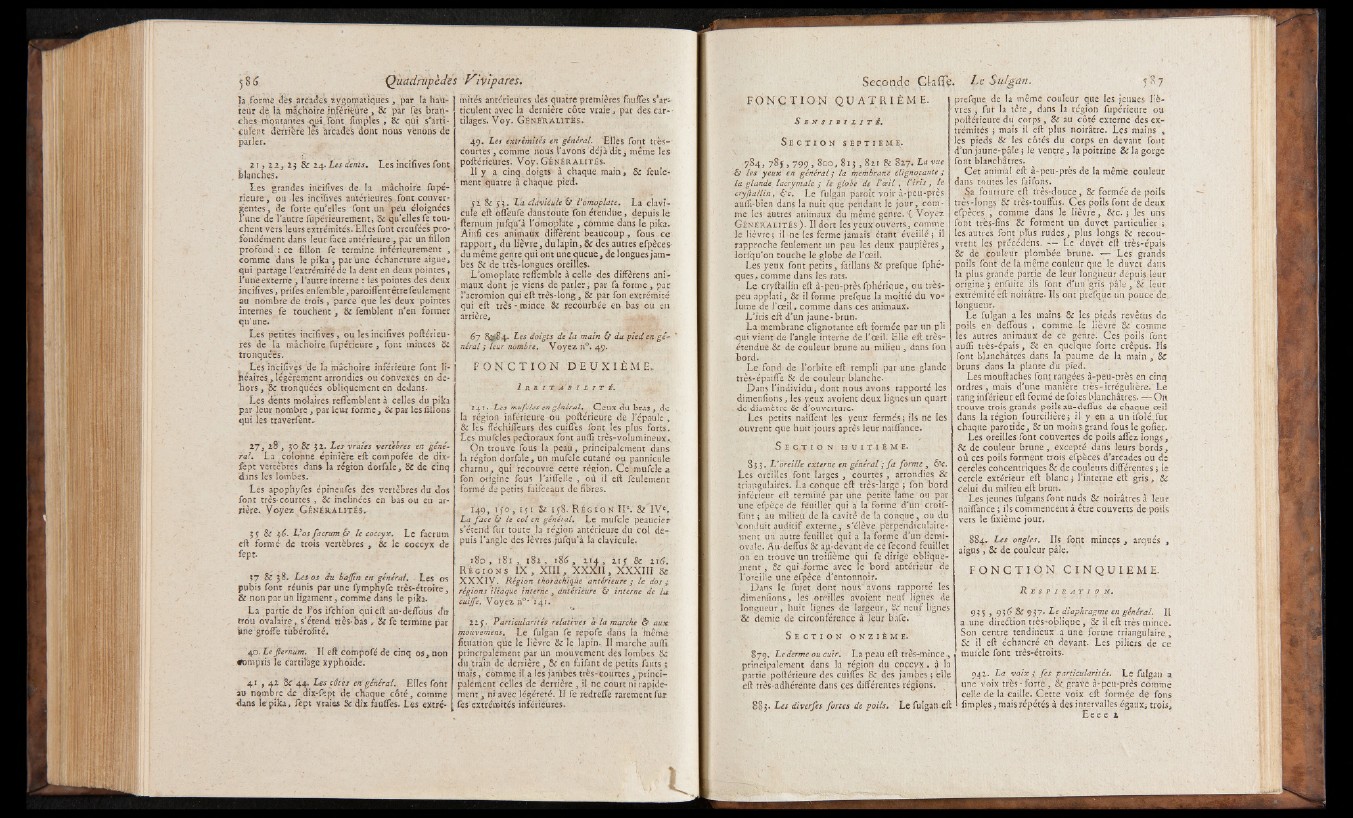 586 Quadrupèdes Vivipares.
la forme des arcades zygomatiques, par la hau-
teur de la mâchoire inférieure, & par ſes bran-
ches montantes qui ſont ſimples, & qui s'arti-
culent derrière les arcades dont nous venons de
parler.
21, 22, 23 & 24. Les dents. Les inciſives ſont
blanches.
Les grandes inciſives de la mâchoire ſupé-
rieure, ou les inciſives antérieures ſont conver-
gentes, de ſorte qu'elles ſont un peu éloignées
l'une de l'autre ſupérieurement, & qu'elles ſe tou-
chent vers leurs extrémités. Elles ſont creuſées pro-
fondément dans leur face antérieure, par un ſillon
profond : ce ſillon ſe termine inférieurement,
comme dans le pika, par une échancrure aigue,
qui partage l'extrémité de la dent en deux pointes,
l'une externe, l'autre interne : les pointes des deux
inciſives, priſes enſemble, paroiſſent être ſeulement
au nombre de trois, parce que les deux pointes
internes ſe touchent, & ſemblent n'en former
qu'une.
Les petites inciſives, ou les inciſives poſtérieu-
res de la mâchoire ſupérieure, ſont minces &
tronquées.
Les inciſives de la mâchoire inférieure ſont li-
néaires, légèrement arrondies ou convexes en de-
hors, & tronquées obliquement en dedans.
Les dents molaires reſſemblent à celles du pika
par leur nombre, par leur forme, & par les ſillons
qui les traverſent.
27, 28, 30 & 32. Les vraies vertèbres en géné-
ral. La colonne épinière eſt compoſée de dix-
ſept vertèbres dans la région dorſale, & de cinq
dans les lombes.
Les apophyſes épineuſes des vertèbres du dos
ſont très-courtes, & inclinées en bas ou en ar-
rière. Voyez GÉNÉRALITÉS.
35 & 36. L'os ſacrum & le coccyx. Le ſacrum
eſt formé de trois vertèbres, & le coccyx de
ſept.
37 & 38. Les os du baſſin en général. Les os
pubis ſont réunis par une ſymphyſe très-étroite,
& non par un ligament, comme dans le pika.
La partie de l'os iſchion qui eſt au-deſſous du
trou ovalaire, s'étend très-bas, & ſe termine par
une groſſe tubéroſité.
40. Le ſternum. Il eſt compoſé de cinq os, non
compris le cartilage xyphoïde.
41, 42 & 44. Les côtes en général. Elles ſont
au nombre de dix-ſept de chaque côté, comme
dans le pika, ſept vraies & dix fauſſes. Les extré-
mités antérieures des quatre premières fauſſes s'ar-
ticulent avec la dernière côte vraie, par des car-
tilages. Voy. GÉNÉRALITÉS.
49. Les extrémités en général. Elles ſont très-
courtes, comme nous l'avons déjà dit, même les
poſtérieures. Voy. GÉNÉRALITÉS.
Il y a cinq doigts à chaque main, & ſeule-
ment quatre à chaque pied.
52 & 53. La clavicule & l'omoplate. La clavi-
cule eſt oſſeuſe dans toute ſon étendue, depuis le
ſternum juſqu'à l'omoplate, comme dans le pika.
Ainſi ces animaux diffèrent beaucoup, ſous ce
rapport, du lièvre, du lapin, & des autres eſpèces
du même genre qui ont une queue, de longues jam-
bes & de très-longues oreilles.
L'omoplate reſſemble à celle des différens ani-
maux dont je viens de parler; par ſa forme, par
l'acromion qui eſt très-long, & par ſon extrémité
qui eſt très-mince & recourbée en bas ou en
arrière.
67 & 84. Les doigts de la main & du pied en gé-
néral; leur nombre. Voyez n°. 49.
FONCTION DEUXIÈME.
IRRITABILITÉ.
141. Les muſcles en général. Ceux du bras, de
la région inférieure ou poſtérieure de l'épaule,
& les fléchiſſeurs des cuiſſes ſont les plus forts.
Les muſcles pectoraux ſont auſſi très-volumineux.
On trouve ſous la peau, principalement dans
la région dorſale, un muſcle cutané ou pannicule
charnu, qui recouvre cette région. Ce muſcle a
ſon origine ſous l'aiſſelle, où il eſt ſeulement
formé de petits faiſceaux de fibres.
149, 150, 151 & 158. RÉGION IIe. & IVe.
La face & le col en général. Le muſcle peaucier
s'étend ſur toute la région antérieure du col de-
puis l'angle des lèvres juſqu'à la clavicule.
180, 181, 182, 186, 214, 215 & 216.
RÉGIONS IX, XIII, XXXII, XXXIII &
XXXIV. Région thorachique antérieure; le dos;
régions iliaque interne, antérieure & interne de la
cuiſſe. Voyez n°. 141.
225. Particularités relatives à la marche & aux
mouvemens. Le ſulgan ſe repoſe dans la même
ſituation que le lièvre & le lapin. Il marche auſſi
principalement par un mouvement des lombes &
du train de derrière, & en faiſant de petits ſauts;
mais, comme il a les jambes très-courtes, princi-
palement celles de derrière, il ne court ni rapide-
ment, ni avec légéreté. Il ſe redreſſe rarement ſur
ſes extrémités inférieures.
Seconde Claſſe. Le Sulgan. 587
FONCTION QUATRIÈME.
SENSIBILITÉ.
SECTION SEPTIÈME.
784, 785, 799, 800, 815, 821 & 827. La vue
& les yeux en général; la membrane clignotante;
la glande lacrymale; le globe de l'œil, l'iris, le
cryſtallin, &c. Le ſulgan paroît voir à-peu-près
auſſi-bien dans la nuit que pendant le jour, com-
me les autres animaux du même genre. (Voyez
GÉNÉRALITÉS). Il dort les yeux ouverts, comme
le lièvre; il ne les ferme jamais étant éveillé; il
rapproche ſeulement un peu les deux paupières,
lorſqu'on touche le globe de l'œil.
Les yeux ſont petits, ſaillans & preſque ſphé-
riques, comme dans les rats.
Le cryſtallin eſt à-peu-près ſphérique, ou très-
peu applati, & il forme preſque la moitié du vo-
lume de l'œil, comme dans ces animaux.
L'iris eſt d'un jaune-brun.
La membrane clignotante eſt formée par un pli
qui vient de l'angle interne de l'œil. Elle eſt très-
étendue & de couleur brune au milieu, dans ſon
bord.
Le fond de l'orbite eſt rempli par une glande
très-épaiſſe & de couleur blanche.
Dans l'individu, dont nous avons rapporté les
dimenſions, les yeux avoient deux lignes un quart
de diamètre & d'ouverture.
Les petits naiſſent les yeux fermés; ils ne les
ouvrent que huit jours après leur naiſſance.
SECTION HUITIÈME.
833. L'oreille externe en général; ſa forme, &c.
Les oreilles ſont larges, courtes, arrondies &
triangulaires. La conque eſt très-large; ſon bord
inférieur eſt terminé par une petite lame ou par
une eſpèce de feuillet qui a la forme d'un croiſ-
ſant; au milieu de la cavité de la conque, ou du
conduit auditif externe, s'élève perpendiculaire-
ment un autre feuillet qui a la forme d'un demi-
ovale. Au-deſſus & au-devant de ce ſecond feuillet
on en trouve un troiſième qui ſe dirige oblique-
ment, & qui forme avec le bord antérieur de
l'oreille une eſpèce d'entonnoir.
Dans le ſujet dont nous avons rapporté les
dimenſions, les oreilles avoient neuf lignes de
longueur, huit lignes de largeur, & neuf lignes
& demie de circonférence à leur baſe.
SECTION ONZIÈME.
879. Le derme ou cuir. La peau eſt très-mince,
principalement dans la région du coccyx, à la
partie poſtérieure des cuiſſes & des jambes; elle
eſt très-adhérente dans ces différentes régions.
883. Les diverſes ſortes de poils. Le ſulgan eſt
preſque de la même couleur que les jeunes liè-
vres, ſur la tête, dans la région ſupérieure ou
poſtérieure du corps, & au côté externe des ex-
trémités; mais il eſt plus noirâtre. Les mains,
les pieds & les côtés du corps en devant ſont
d'un jaune-pâle; le ventre, la poitrine & la gorge
ſont blanchâtres.
Cet animal eſt à-peu-près de la même couleur
dans toutes les ſaiſons.
Sa fourrure eſt très-douce, & formée de poils
très-longs & très-touffus. Ces poils ſont de deux
eſpèces, comme dans le lièvre, &c.; les uns
ſont très-fins & forment un duvet particulier;
les autres ſont plus rudes, plus longs & recou-
vrent les précédens. — Le duvet eſt très-épais
& de couleur plombée brune. — Les grands
poils ſont de la même couleur que le duvet dans
la plus grande partie de leur longueur depuis leur
origine; enſuite ils ſont d'un gris pâle, & leur
extrémité eſt noirâtre. Ils ont preſque un pouce de
longueur.
Le ſulgan a les mains & les pieds revêtus de
poils en deſſous, comme le lièvre & comme
les autres animaux de ce genre. Ces poils ſont
auſſi très-épais, & en quelque ſorte crêpus. Ils
ſont blanchâtres dans la paume de la main, &
bruns dans la plante du pied.
Les mouſtaches ſont rangées à-peu-près en cinq
ordres, mais d'une manière très-irrégulière. Le
rang inférieur eſt formé de ſoies blanchâtres. — On
trouve trois grands poils au-deſſus de chaque œil
dans la région ſourcilière; il y en a un iſolé ſur
chaque parotide, & un moins grand ſous le goſier.
Les oreilles ſont couvertes de poils aſſez longs,
& de couleur brune, excepté dans leurs bords,
où ces poils forment trois eſpèces d'arcades ou de
cercles concentriques & de couleurs différentes; le
cercle extérieur eſt blanc; l'interne eſt gris, &
celui du milieu eſt brun.
Les jeunes ſulgans ſont nuds & noirâtres à leur
naiſſance; ils commencent à être couverts de poils
vers le ſixième jour.
884. Les ongles. Ils ſont minces, arqués,
aigus, & de couleur pâle.
FONCTION CINQUIEME.
RESPIRATION.
935, 936 & 937. Le diaphragme en général. Il
a une direction très-oblique, & il eſt très mince.
Son centre tendineux a une forme triangulaire,
& il eſt échancré en devant. Les piliers de ce
muſcle ſont très-étroits.
942. La voix; ſes particularités. Le ſulgan a
une voix très-forte, & grave à-peu-près comme
celle de la caille. Cette voix eſt formée de ſons
ſimples, mais répétés à des intervalles égaux, trois,
Eeee 2